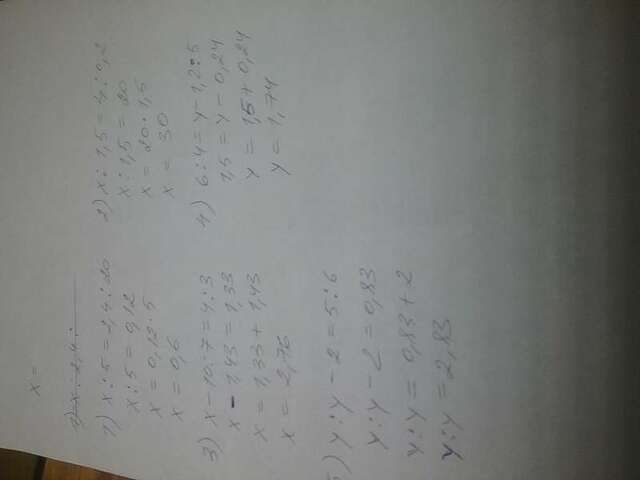 x =
1) x : 2,4 :
1) x : 5 = 2,4 : 20
x : 5 = 0,12
x = 0,12 · 5
x = 0,6
2) x : 1,5 = 4 : 0,2
x : 1,5 = 20
x = 20 · 1,5
x = 30
3) x - 10 : 7 = 4 : 3
x - 1,43 = 1,33
x = 1,33 + 1,43
x = 2,76
4) 6 : 4 = y - 1,2 : 5
1,5 = y - 0,24
y = 1,5 + 0,24
y = 1,74
5) y : y - 2 = 5 : 6
y : y - 2 = 0,83
y : y = 0,83 + 2
y : y = 2,83